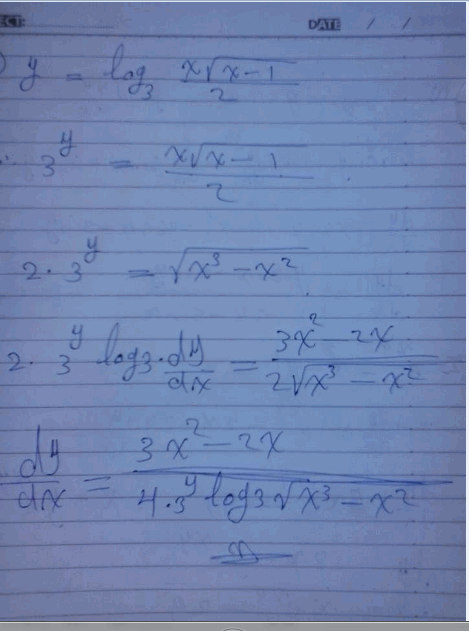 ECT: DATE / /
) y = log₃ x√x-1 / 2
∴ 3^y = x√x-1 / 2
2·3^y = √x³-x²
2·3^y log3·dy/dx = 3x²-2x / 2√x³-x²
dy/dx = 3x²-2x / 4·3^y log3√x³-x²